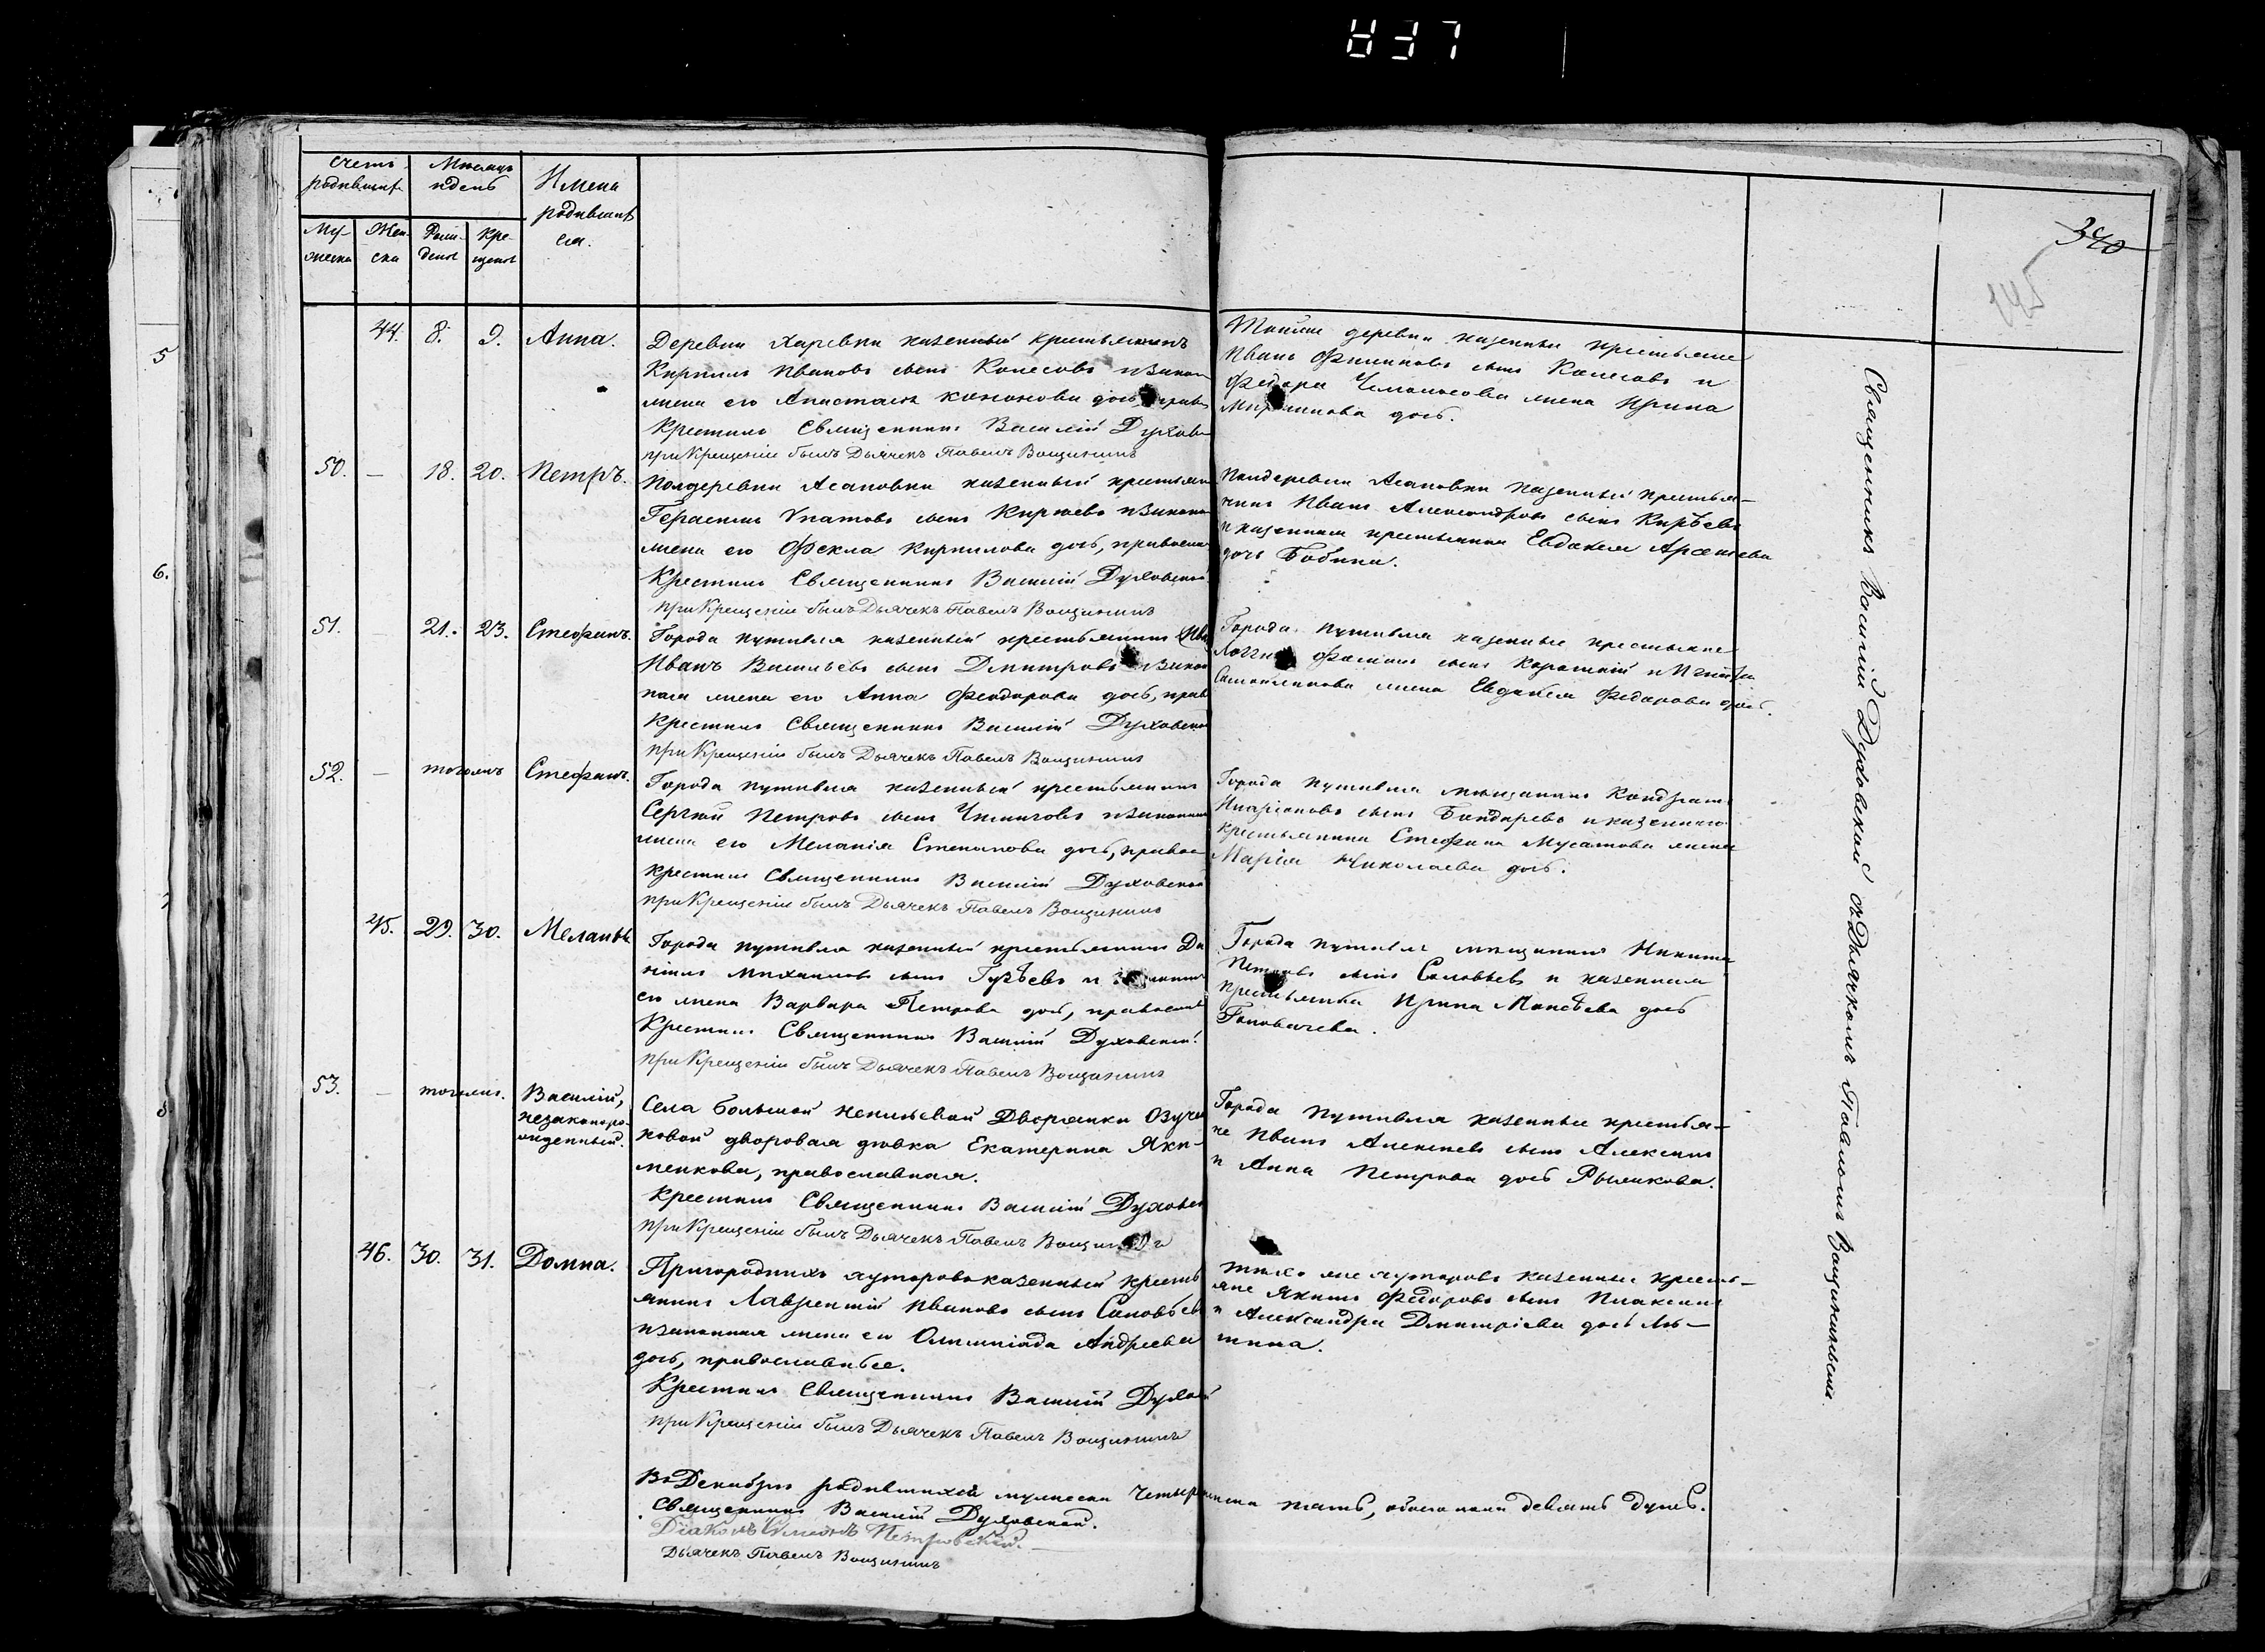 837
счетъ родившихся
Мѣсяцъ и день
Имена родившихся.
Мужеска
Женска
Рожденія
Крещенія
340
145
44. 8. 9. Анна.
Деревни Харевки казенный крестьянинъ
Кириллъ Ивановъ сынъ Колесовъ и законная
жена его Анастасія Кононова дочь, прав
Крестилъ Священникъ Василій Духовской
при Крещеніи былъ Дьячекъ Павелъ Вощининъ
Тойже деревни казенные крестьяне
Иванъ Филиповъ сынъ Колесовъ и
Федора жена Ирина
дочь.
50. – 18. 20. Петръ.
Полдеревни Асановки казенный крестьянин
Герасимъ Ипатовъ сынъ Кирѣевъ и законная
жена его Фекла Кирилова дочь, православ
Крестилъ Священникъ Василій Духовской
при Крещеніи былъ Дьячекъ Павелъ Вощининъ
Полдеревни Асановки казенный крестья–
нинъ Иванъ Александровъ сынъ Кирѣевъ
и казенная крестьянка Евдокия
дочь Бобина.
51. – 21. 23. Стефанъ.
Города Путивля казенный крестьянинъ
Иванъ Васильевъ сынъ Дмитровъ и закон
ная жена его Анна Феодорова дочь, прав
Крестилъ Священникъ Василій Духовской
при Крещеніи былъ Дьячекъ Павелъ Вощининъ
Города Путивля казенные крестьяне
сынъ Короткій и
жена Евдокия Федорова дочь.
52. – тогожъ Стефанъ.
Города Путивля казенный крестьянинъ
Сергѣй Петровъ сынъ и законная
жена его Меланія Степанова дочь, правос
Крестилъ Священникъ Василій Духовской
при Крещеніи былъ Дьячекъ Павелъ Вощининъ
Города Путивля мѣщанинъ Кондратъ
сынъ Бондаревъ и казеннаго
крестьянина Стефана Мусатова жена
Марія Николаева дочь.
45. 29. 30. Меланія
Города Путивля казенный крестьянинъ Да
ніилъ Михаиловъ сынъ и законная
его жена Варвара Петрова дочь, православ
Крестилъ Священникъ Василій Духовской
при Крещеніи былъ Дьячекъ Павелъ Вощининъ
Города Путивля мѣщанинъ Никита
Петровъ сынъ Соловьевъ и казенная
крестьянка Ирина дочь
Головачева.
53. – тогожъ. Василій, незаконорожденный.
Села большой Неплюевой Дворянки
ковой дворовая дѣвка Екатерина Яки–
менкова, православная.
Крестилъ Священникъ Василій Духовской
при Крещеніи былъ Дьячекъ Павелъ Вощининъ
Города Путивля казенные крестья–
не Иванъ Алексеевъ сынъ Алехинъ
и Анна Петрова дочь Рыжикова.
46. 30. 31. Домна.
Пригородныхъ хуторовъ казенный кресть
янинъ Лаврентій Ивановъ сынъ Соловьев
и законная жена его Олимпіада Андреева
дочь, православные.
Крестилъ Священникъ Василій Духовской
при Крещеніи былъ Дьячекъ Павелъ Вощининъ
Тѣхъ же хуторовъ казенные кресть–
яне Якимъ Федоровъ сынъ Плаксинъ
и Александра Дмитріева дочь
Въ Декабрѣ родившихся мужеска четыре женска пять, обоего пола девять душъ.
Священникъ Василій Духовской.
Діаконъ Симеонъ Петровскій.
Дьячекъ Павелъ Вощининъ
Священникъ Василій Духовской съ Дьячкомъ Павломъ Вощининымъ.